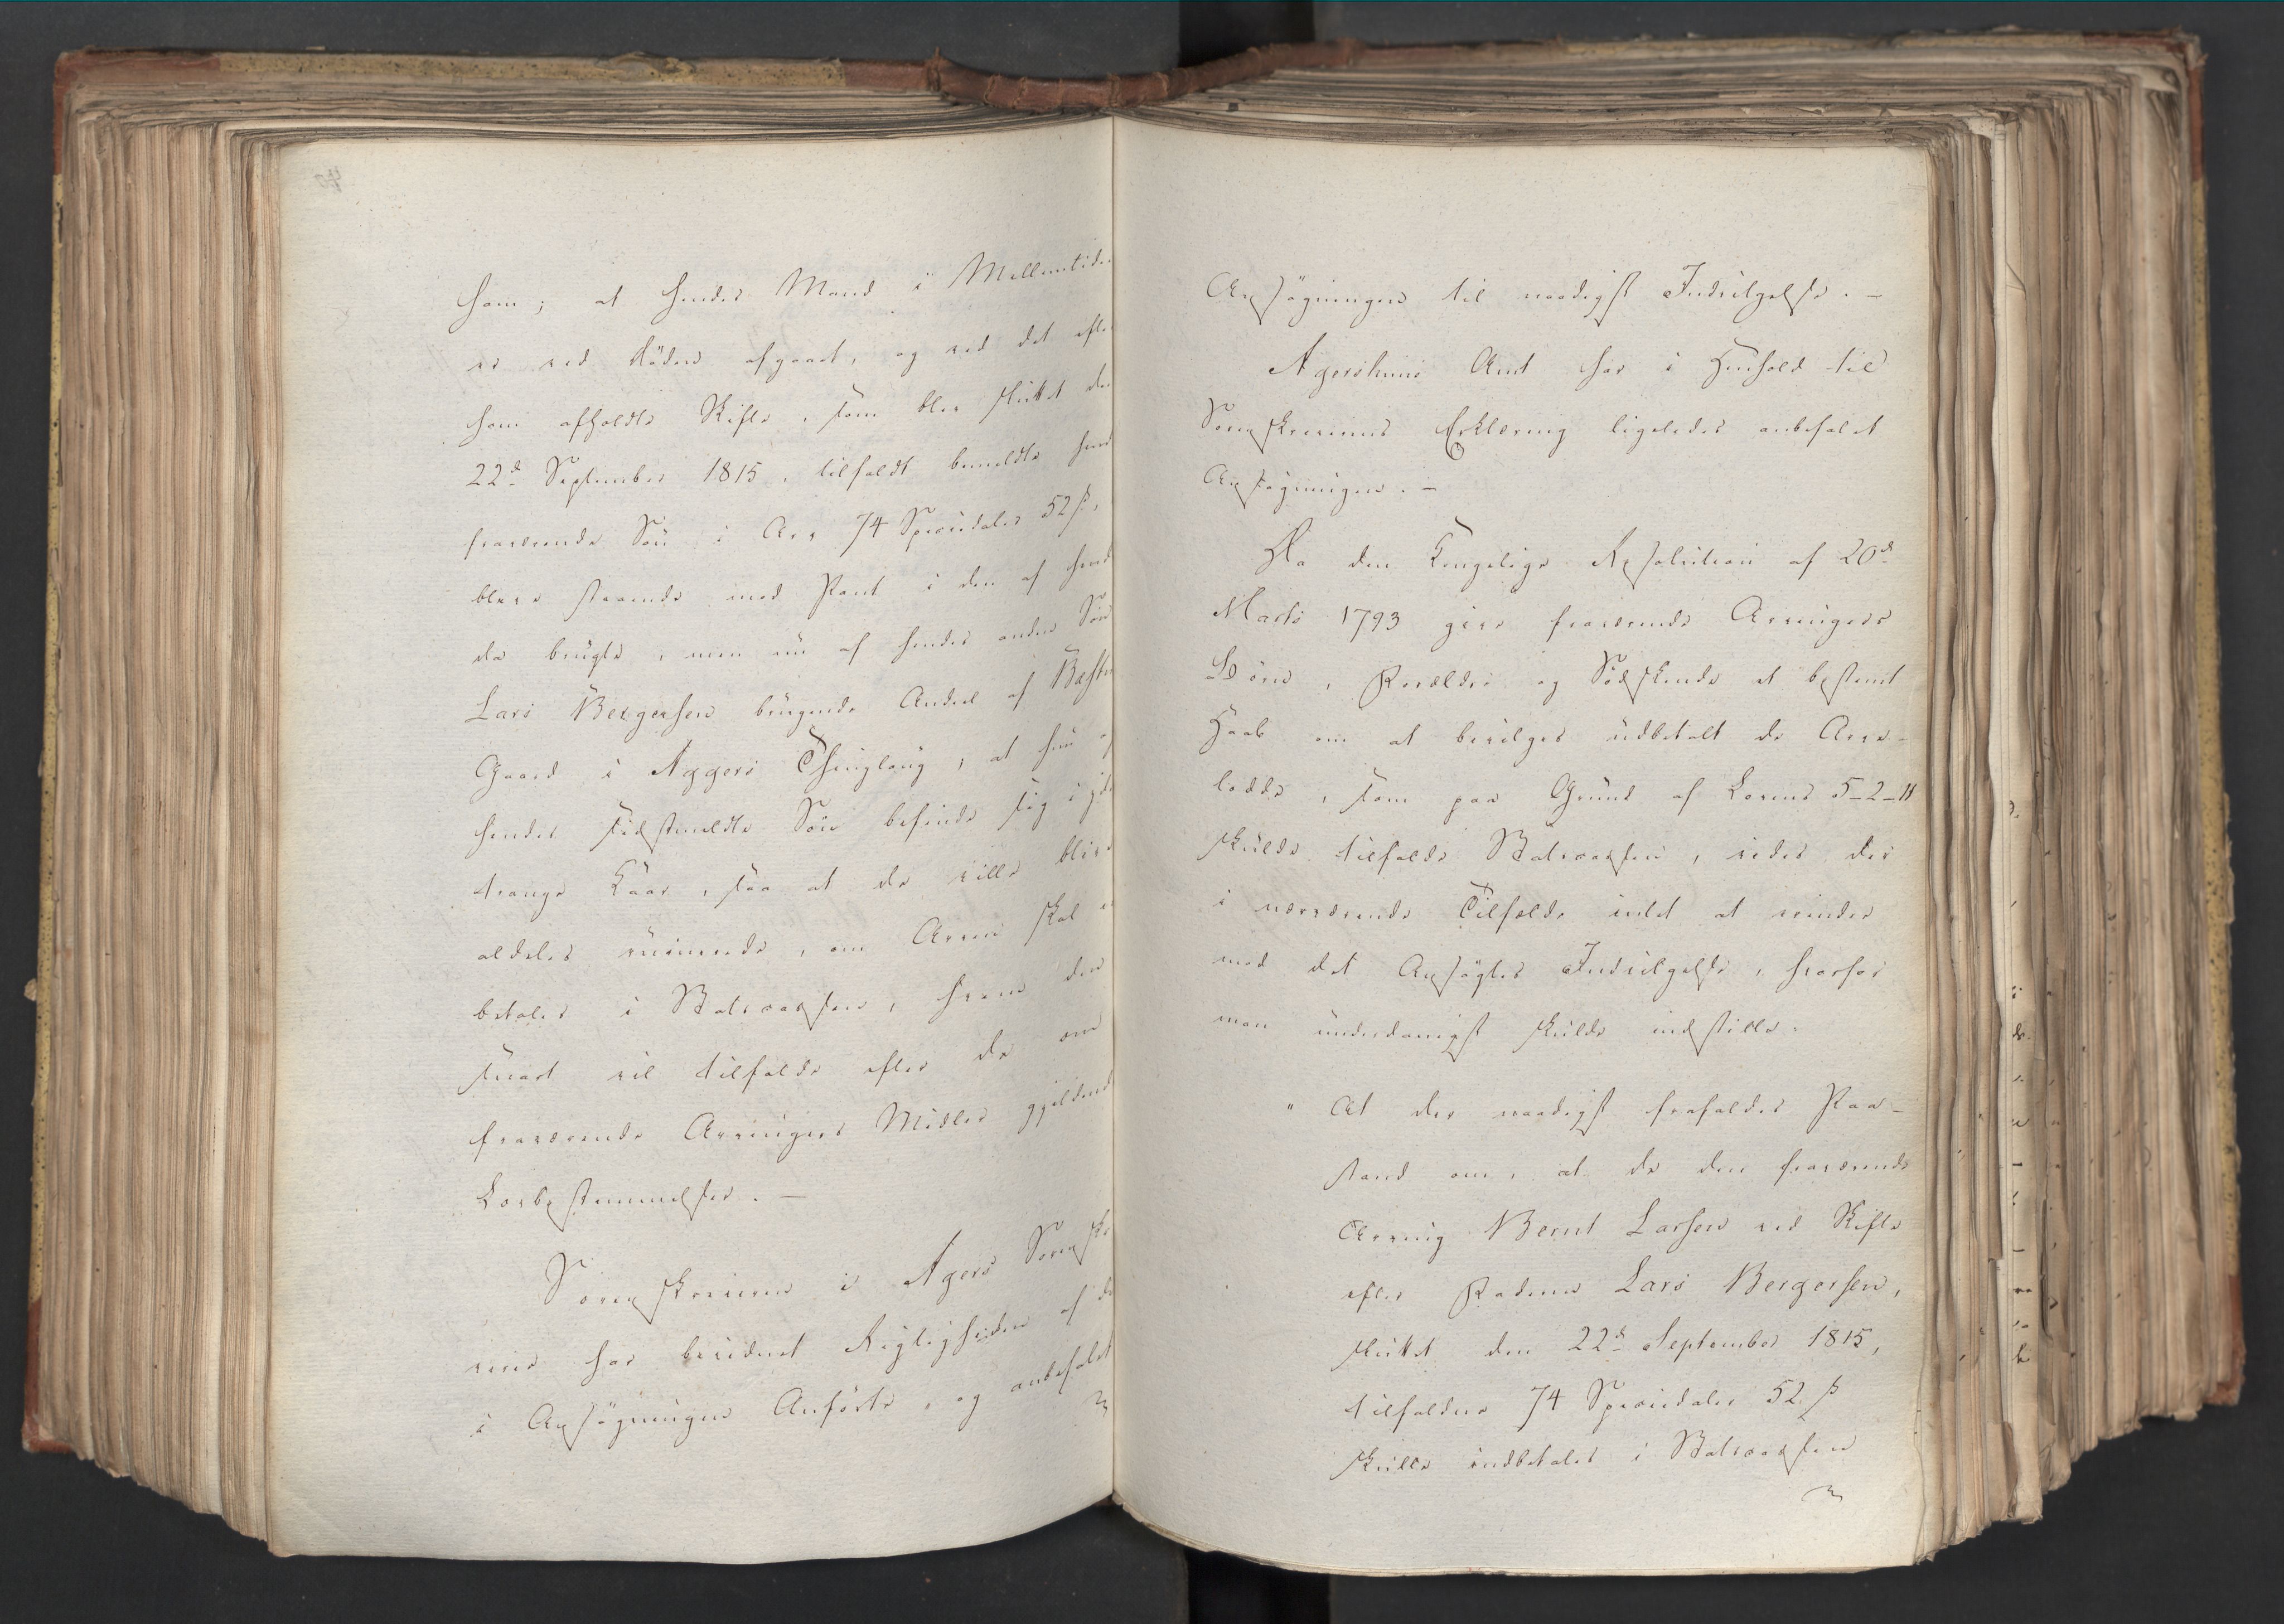 ham; at hendes Mand i Mellemtiden
er ved Döden afgaaet, og ved det efter
ham afholdte Skifte, som blev sluttet den
22d September 1815, tilfaldt bemeldte hendes
fraværende Sön i Arv 74 Speciedaler 52 ß,
blev staaende med Pant i den af hende
da brugte, men nu af hendes anden Sön
Lars Bergersen brugende Andeel af
Gaard i Aggers Thinglaug, at hun og
hendes sidstmeldte Sön befinde sig i
trange Kaar, saa at de ville blive
aldeles ruinerede, om Arven skal
betales i Statscassen, hvem den
snart vil tilfalde efter de om
fraværende Arvingers Midler gjeldende
Lovbestemmelser. —
Sorenskriveren i Agers Sorenskri-
verie har bevidnet Rigtigheden af det
i Ansögningen Anförte, og anbefalet
Ansögningen til naadigst Indvilgelse. —
Agershuus Amt har i Henhold til
Sorenskriverens Erklæring ligeledes anbefalet
Ansögningen. —
Da den Kongelige Resolution af 20d
Marts 1793 giver fraværende Arvingers
Börn, Forældre og Södskende et bestemt
Haab om at bevilges udbetalt de Arve-
lodder, som paa Grund af Lovens 5-2-11
skulde tilfalde Statscassen, vides der
i nærværende Tilfælde intet at erindre
mod det Ansögtes Indvilgelse, hvorfor
man underdanigst skulde indstille:
" At der naadigst frafaldes Paa-
stand om, at de den fraværende
Arving Bernt Larsen ved Skifte
efter Faderen Lars Bergersen,
sluttet den 22d September 1815,
tilfaldne 74 Speciedaler 52 ß
skulle indbetales i Statscassen